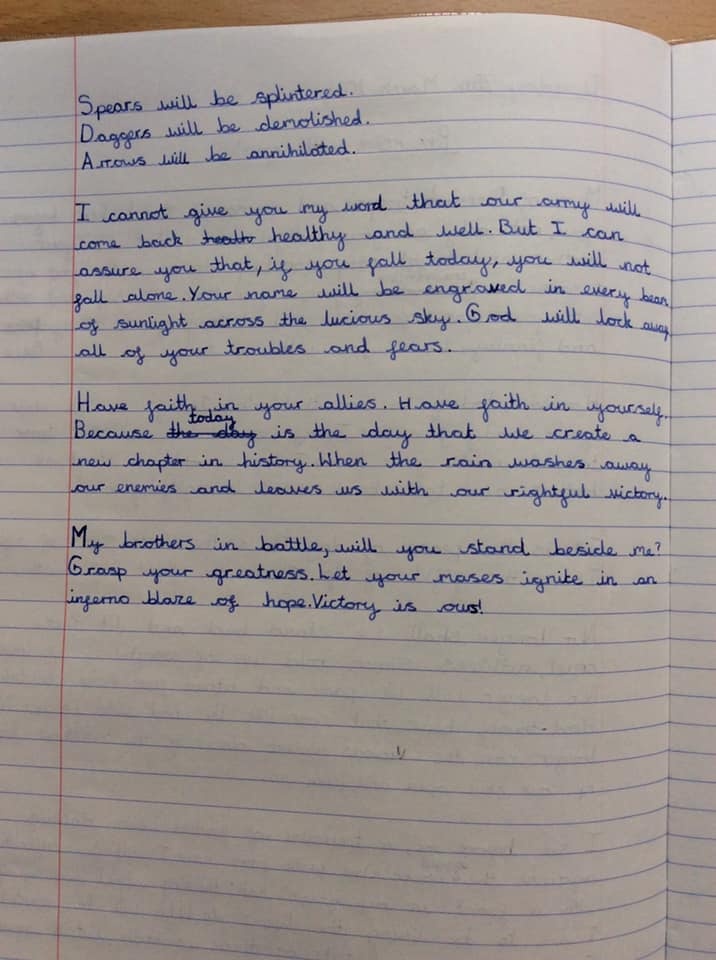 Spears will be splintered.
Daggers will be demolished.
Arrows will be annihilated.
I cannot give you my word that our army will
come back health healthy and well. But I can
assure you that, if you fall today, you will not
fall alone. Your name will be engraved in every beam
of sunlight across the lucious sky. God will lock away
all of your troubles and fears.
Have faith in your allies. Have faith in yourself.
today
Because the day is the day that we create a
new chapter in history. When the rain washes away
our enemies and leaves us with our rightful victory.
My brothers in battle, will you stand beside me?
Grasp your greatness. Let your mases ignite in an
inferno blaze of hope. Victory is ours!